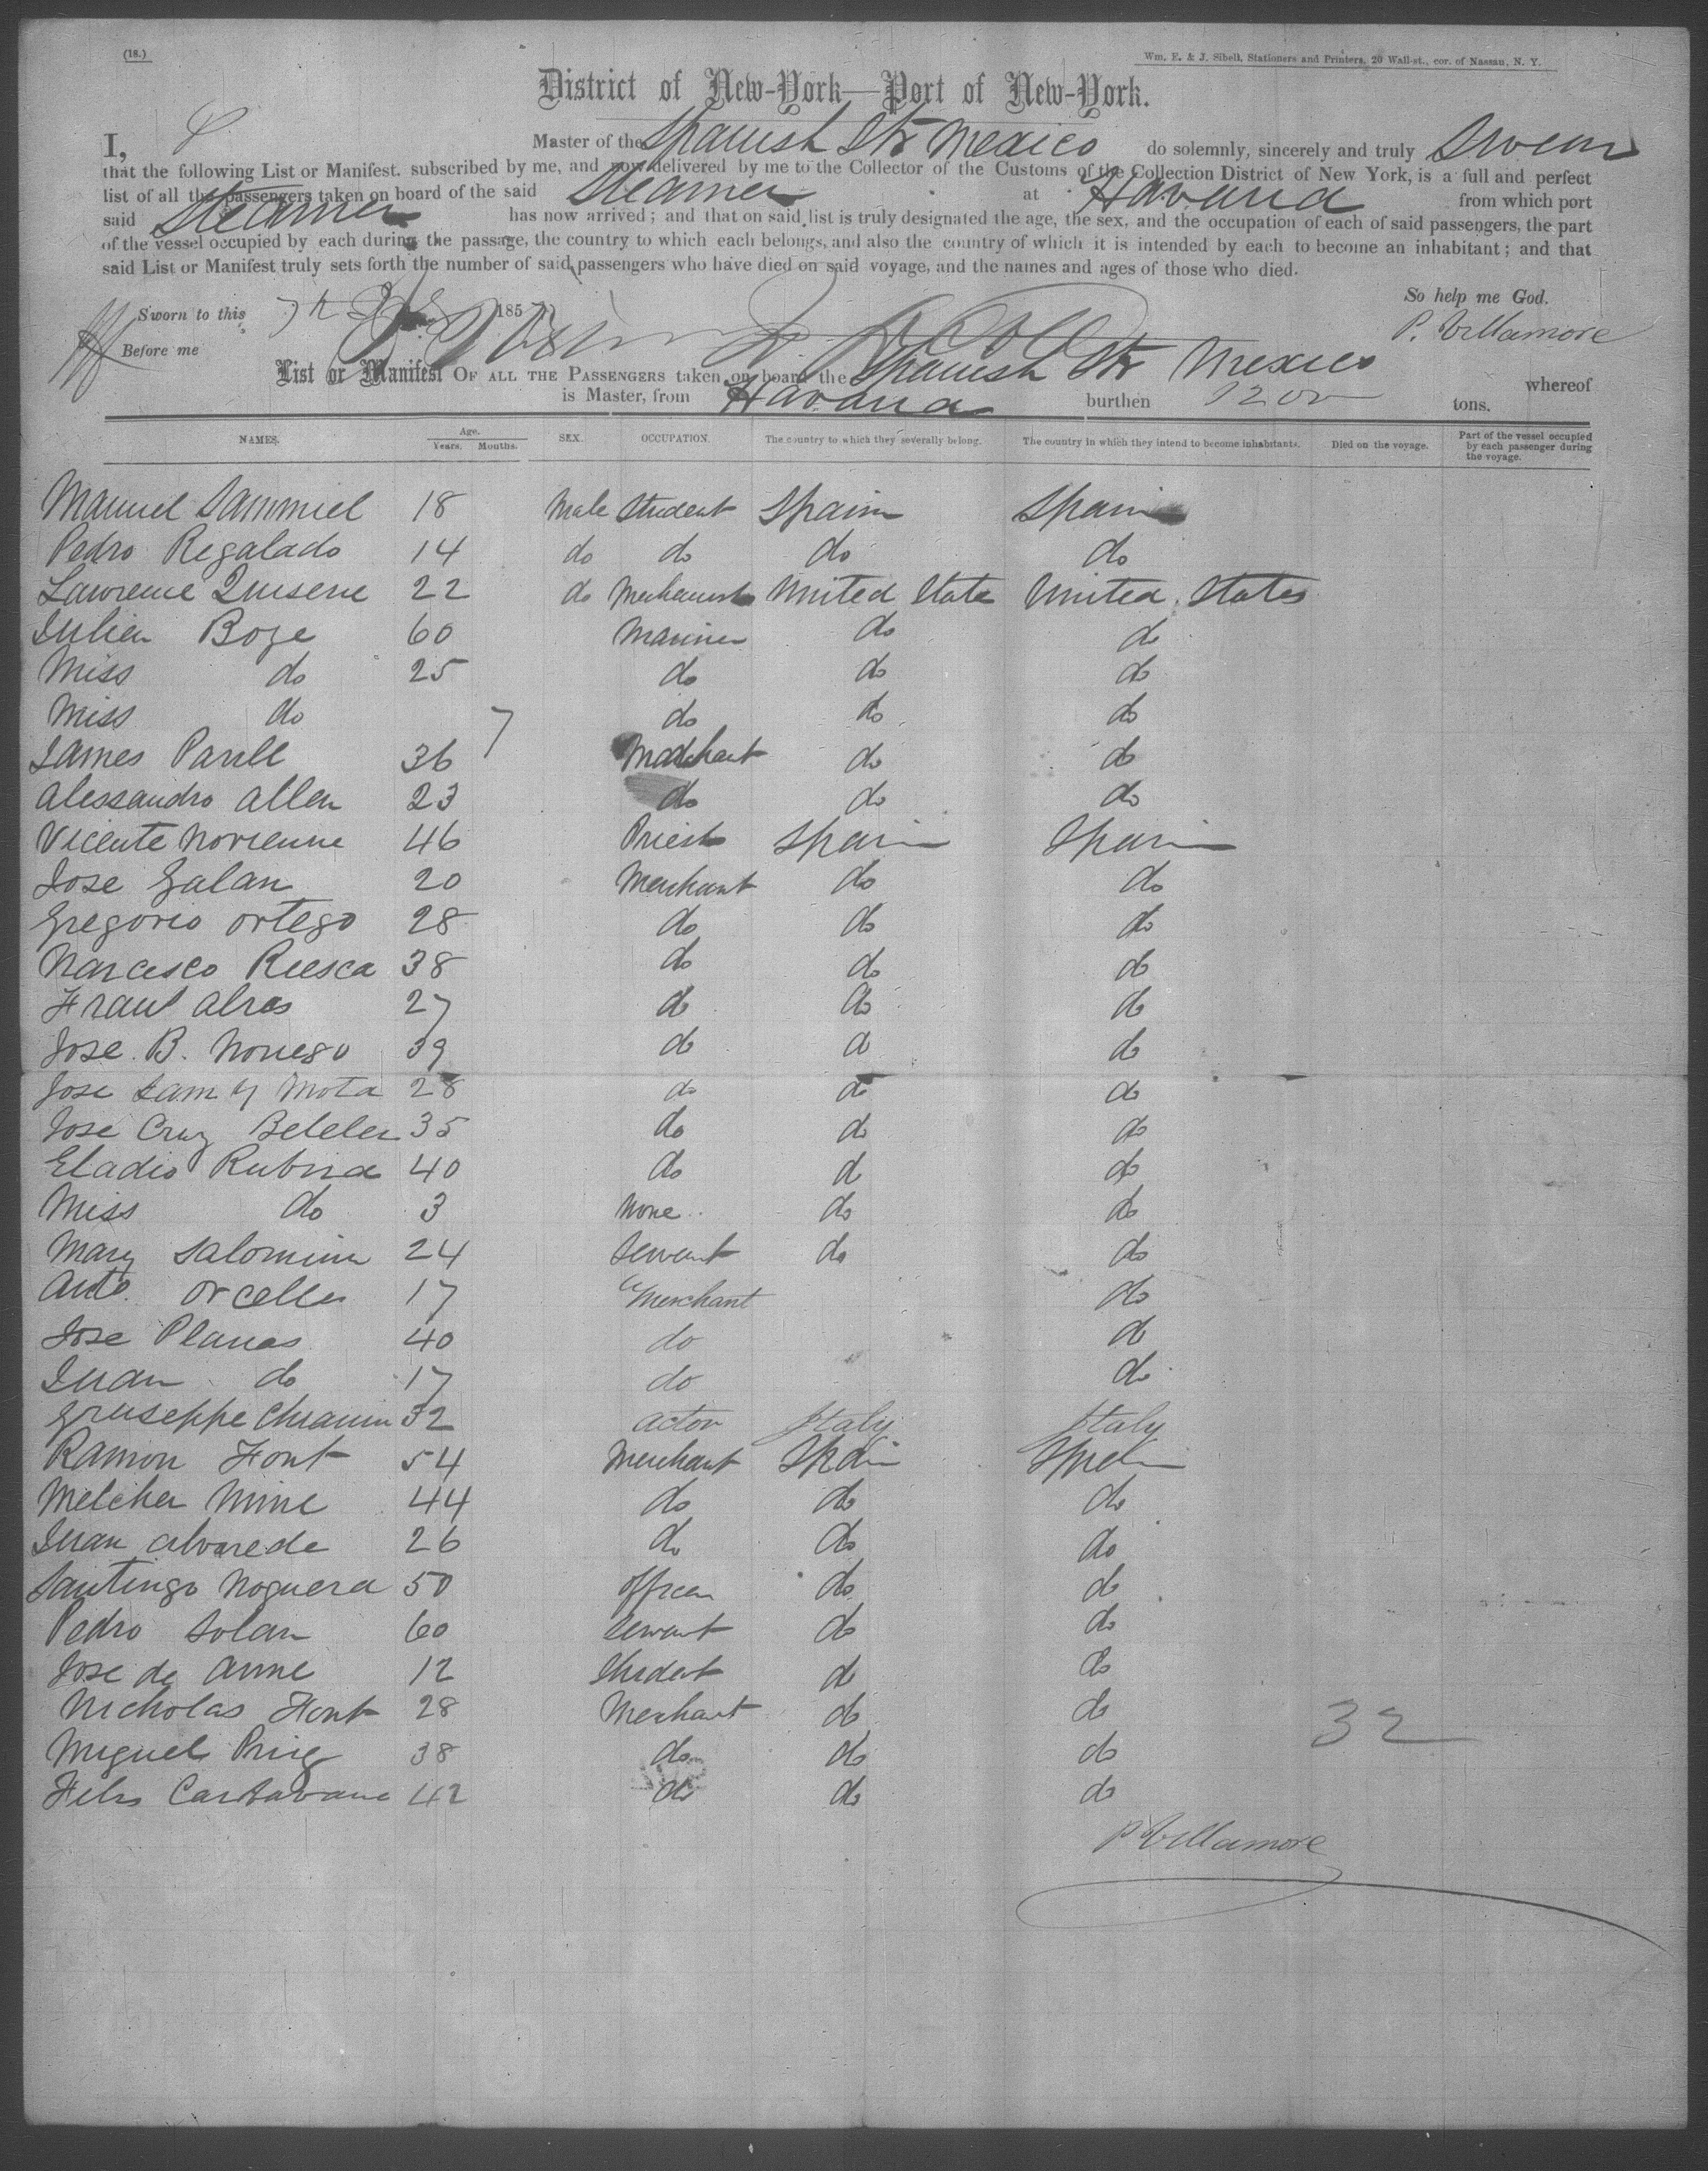 (18.)
Wm. E. & J. Sibell, Stationers and Printers, 20 Wall-st., cor. of Nassau, N. Y.
District of New-York—Port of New-York.
I, Master of the Spanish Str Mexico do solemnly, sincerely and truly Swear
that the following List or Manifest. subscribed by me, and now delivered by me to the Collector of the Customs of the Collection District of New York, is a full and perfect
list of all the passengers taken on board of the said Steamer at Havana from which port
said Steamer has now arrived; and that on said list is truly designated the age, the sex, and the occupation of each of said passengers, the part
of the vessel occupied by each during the passage, the country to which each belongs, and also the country of which it is intended by each to become an inhabitant; and that
said List or Manifest truly sets forth the number of said passengers who have died on said voyage, and the names and ages of those who died.
So help me God.
Sworn to this 7th 185
P. Villamore
Before me
List or Manifest OF ALL THE PASSENGERS taken on board the Spanish Str Mexico whereof
is Master, from Havana burthen 1200 tons.
NAMES. Age. Years. Months. SEX. OCCUPATION. The country to which they severally belong. The country in which they intend to become inhabitants. Died on the voyage. Part of the vessel occupied by each passenger during the voyage.
Manuel Sammiel 18 Male Student Spain Spain
Pedro Regalado 14 do do do do
Lawrence 22 do United State United States
Julien Boze 60 Mariner do do
Miss do 25 do do do
Miss do 7 do do do
James 36 Merchant do do
Alessandro Allen 23 do do do
Vicente 46 Priest Spain Spain
Jose Galan 20 Merchant do do
Gregorio Ortego 28 do do do
Narcisco 38 do do do
27 do do do
Jose B. 39 do do do
Jose Sam y Mota 28 do do do
Jose Cruz 35 do do do
Eladio 40 do do do
Miss do 3 None do do
Mary 24 Servant do do
Anto. 17 Merchant do
Jose Planas 40 do do
Juan do 17 do do
32 actor Italy Italy
Ramon Font 54 Merchant Spain Spain
Melcher 44 do do do
Juan 26 do do do
Santingo Noguera 50 officer do do
Pedro Solan 60 Servant do do
Jose de 12 Student do do
Nicholas Font 28 Merchant do do
32
Miguel Puig 38 do do do
42 do do do
P. Villamore